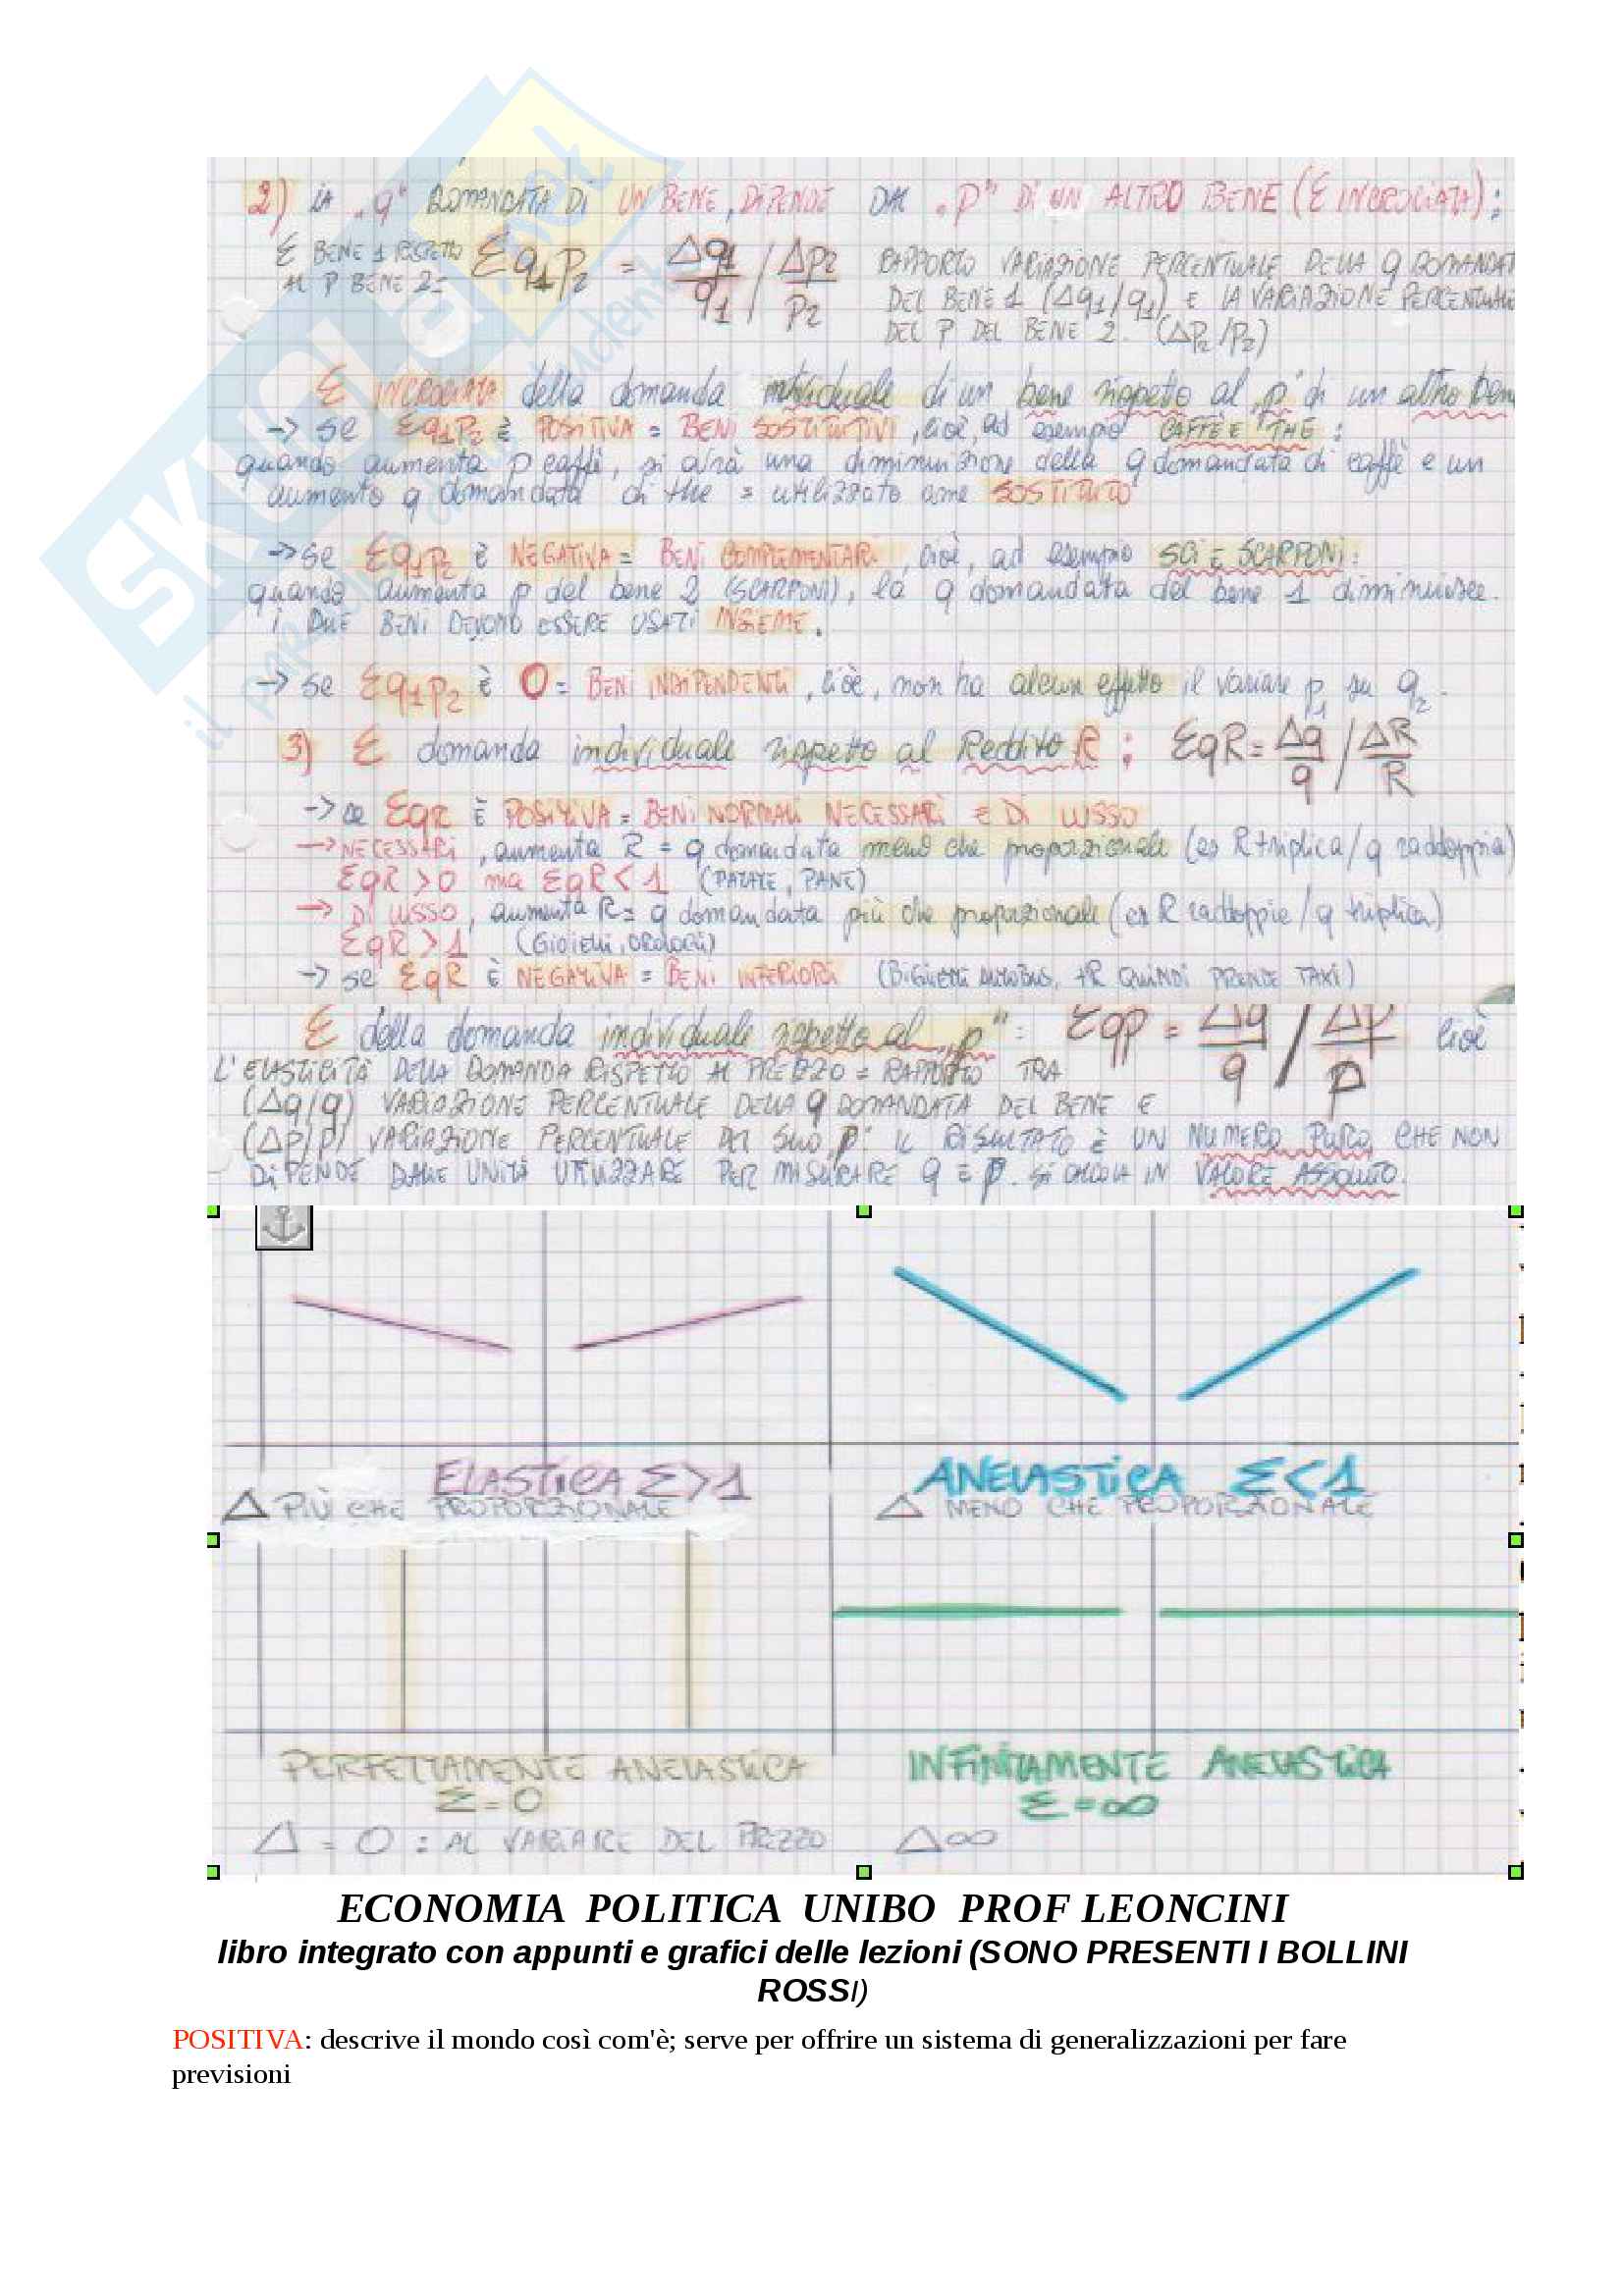 2) LA "q" DOMANDATA DI UN BENE, DIPENDE DAL "P" DI UN ALTRO BENE (Ɛ INCROCIATA):
Ɛ BENE 1 RISPETTO AL P BENE 2 = Ɛq1P2 = Δq1/q1 / Δp2/p2
RAPPORTO VARIAZIONE PERCENTUALE DELLA q DOMANDAT
DEL BENE 1 (Δq1/q1) E LA VARIAZIONE PERCENTUALE
DEL P DEL BENE 2. (ΔP2/P2)
Ɛ INCROCIATA della domanda individuale di un bene rispeto al "p" di un altro bene
-> se Ɛq1P2 è POSITIVA = BENI SOSTITUTIVI, cioè, ad esempio CAFFÈ E THE:
quando aumenta p caffè, si avrà una diminuizione della q domandata di caffè e un
aumento q domandata di the = utilizzato come SOSTITUTO
-> se Ɛq1P2 è NEGATIVA = BENI COMPLEMENTARI, cioè, ad esempio SCI E SCARPONI:
quando aumenta p del bene 2 (SCARPONI), la q domandata del bene 1 diminuisce.
i DUE BENI DEVONO ESSERE USATI INSIEME.
-> se Ɛq1P2 è 0 = BENI INDIPENDENTI, cioè, non ha alcun effetto il variare p1 su q2.
3) Ɛ domanda individuale rispetto al Reddito R: ƐqR = Δq/q / ΔR/R
-> se ƐqR È POSITIVA = BENI NORMALI NECESSARI E DI LUSSO
-> NECESSARI, aumenta R = q domandata meno che proporzionale (es R triplica/q raddoppia)
ƐqR > 0 ma ƐqR < 1 (PATATE, PANE)
-> DI LUSSO, aumenta R = q domandata più che proporzionale (es R raddoppia/q triplica)
ƐqR > 1 (GIOIELLI, OROLOGI)
-> se ƐqR È NEGATIVA = BENI INFERIORI (BIGLIETTI AUTOBUS, +R QUINDI PRENDE TAXI)
Ɛ della domanda individuale rispetto al "p": Ɛqp = Δq/q / Δp/p cioè
L'ELASTICITÀ DELLA DOMANDA RISPETTO AL PREZZO = RAPPORTO TRA
(Δq/q) VARIAZIONE PERCENTUALE DELLA q DOMANDATA DEL BENE E
(Δp/p) VARIAZIONE PERCENTUALE DEL SUO "p". IL RISULTATO È UN NUMERO PURO CHE NON
DIPENDE DALLE UNITÀ UTILIZZARE PER MISURARE q E p. SI CALCOLA IN VALORE ASSOLUTO.
ELASTICA Ɛ>1
ANELASTICA Ɛ<1
Δ PIÙ CHE PROPORZIONALE
Δ MENO CHE PROPORZIONALE
PERFETTAMENTE ANELASTICA
Ɛ=0
INFINITAMENTE ANELASTICA
Ɛ=∞
Δ = 0 : AL VARIARE DEL PREZZO
Δ∞
ECONOMIA POLITICA UNIBO PROF LEONCINI
libro integrato con appunti e grafici delle lezioni (SONO PRESENTI I BOLLINI
ROSSI)
POSITIVA: descrive il mondo così com'è; serve per offrire un sistema di generalizzazioni per fare
previsioni
SKUOLA.net